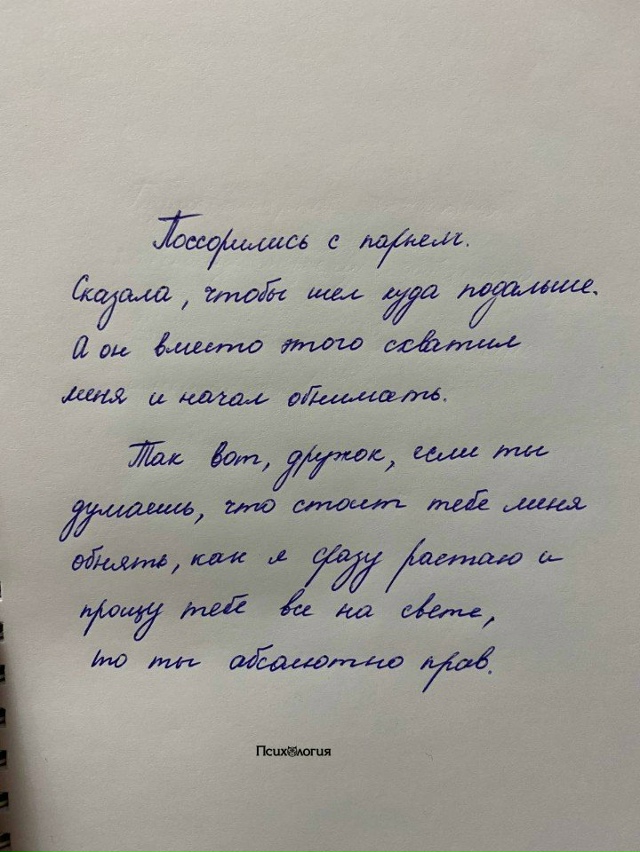 Поссорились с парнем.
Сказала, чтобы шел куда подальше.
А он вместо этого схватил
меня и начал обнимать.
Так вот, дружок, если ты
думаешь, что стоит тебе меня
обнять, как я сразу растаю и
прощу тебе все на свете,
то ты абсолютно прав.
Психология